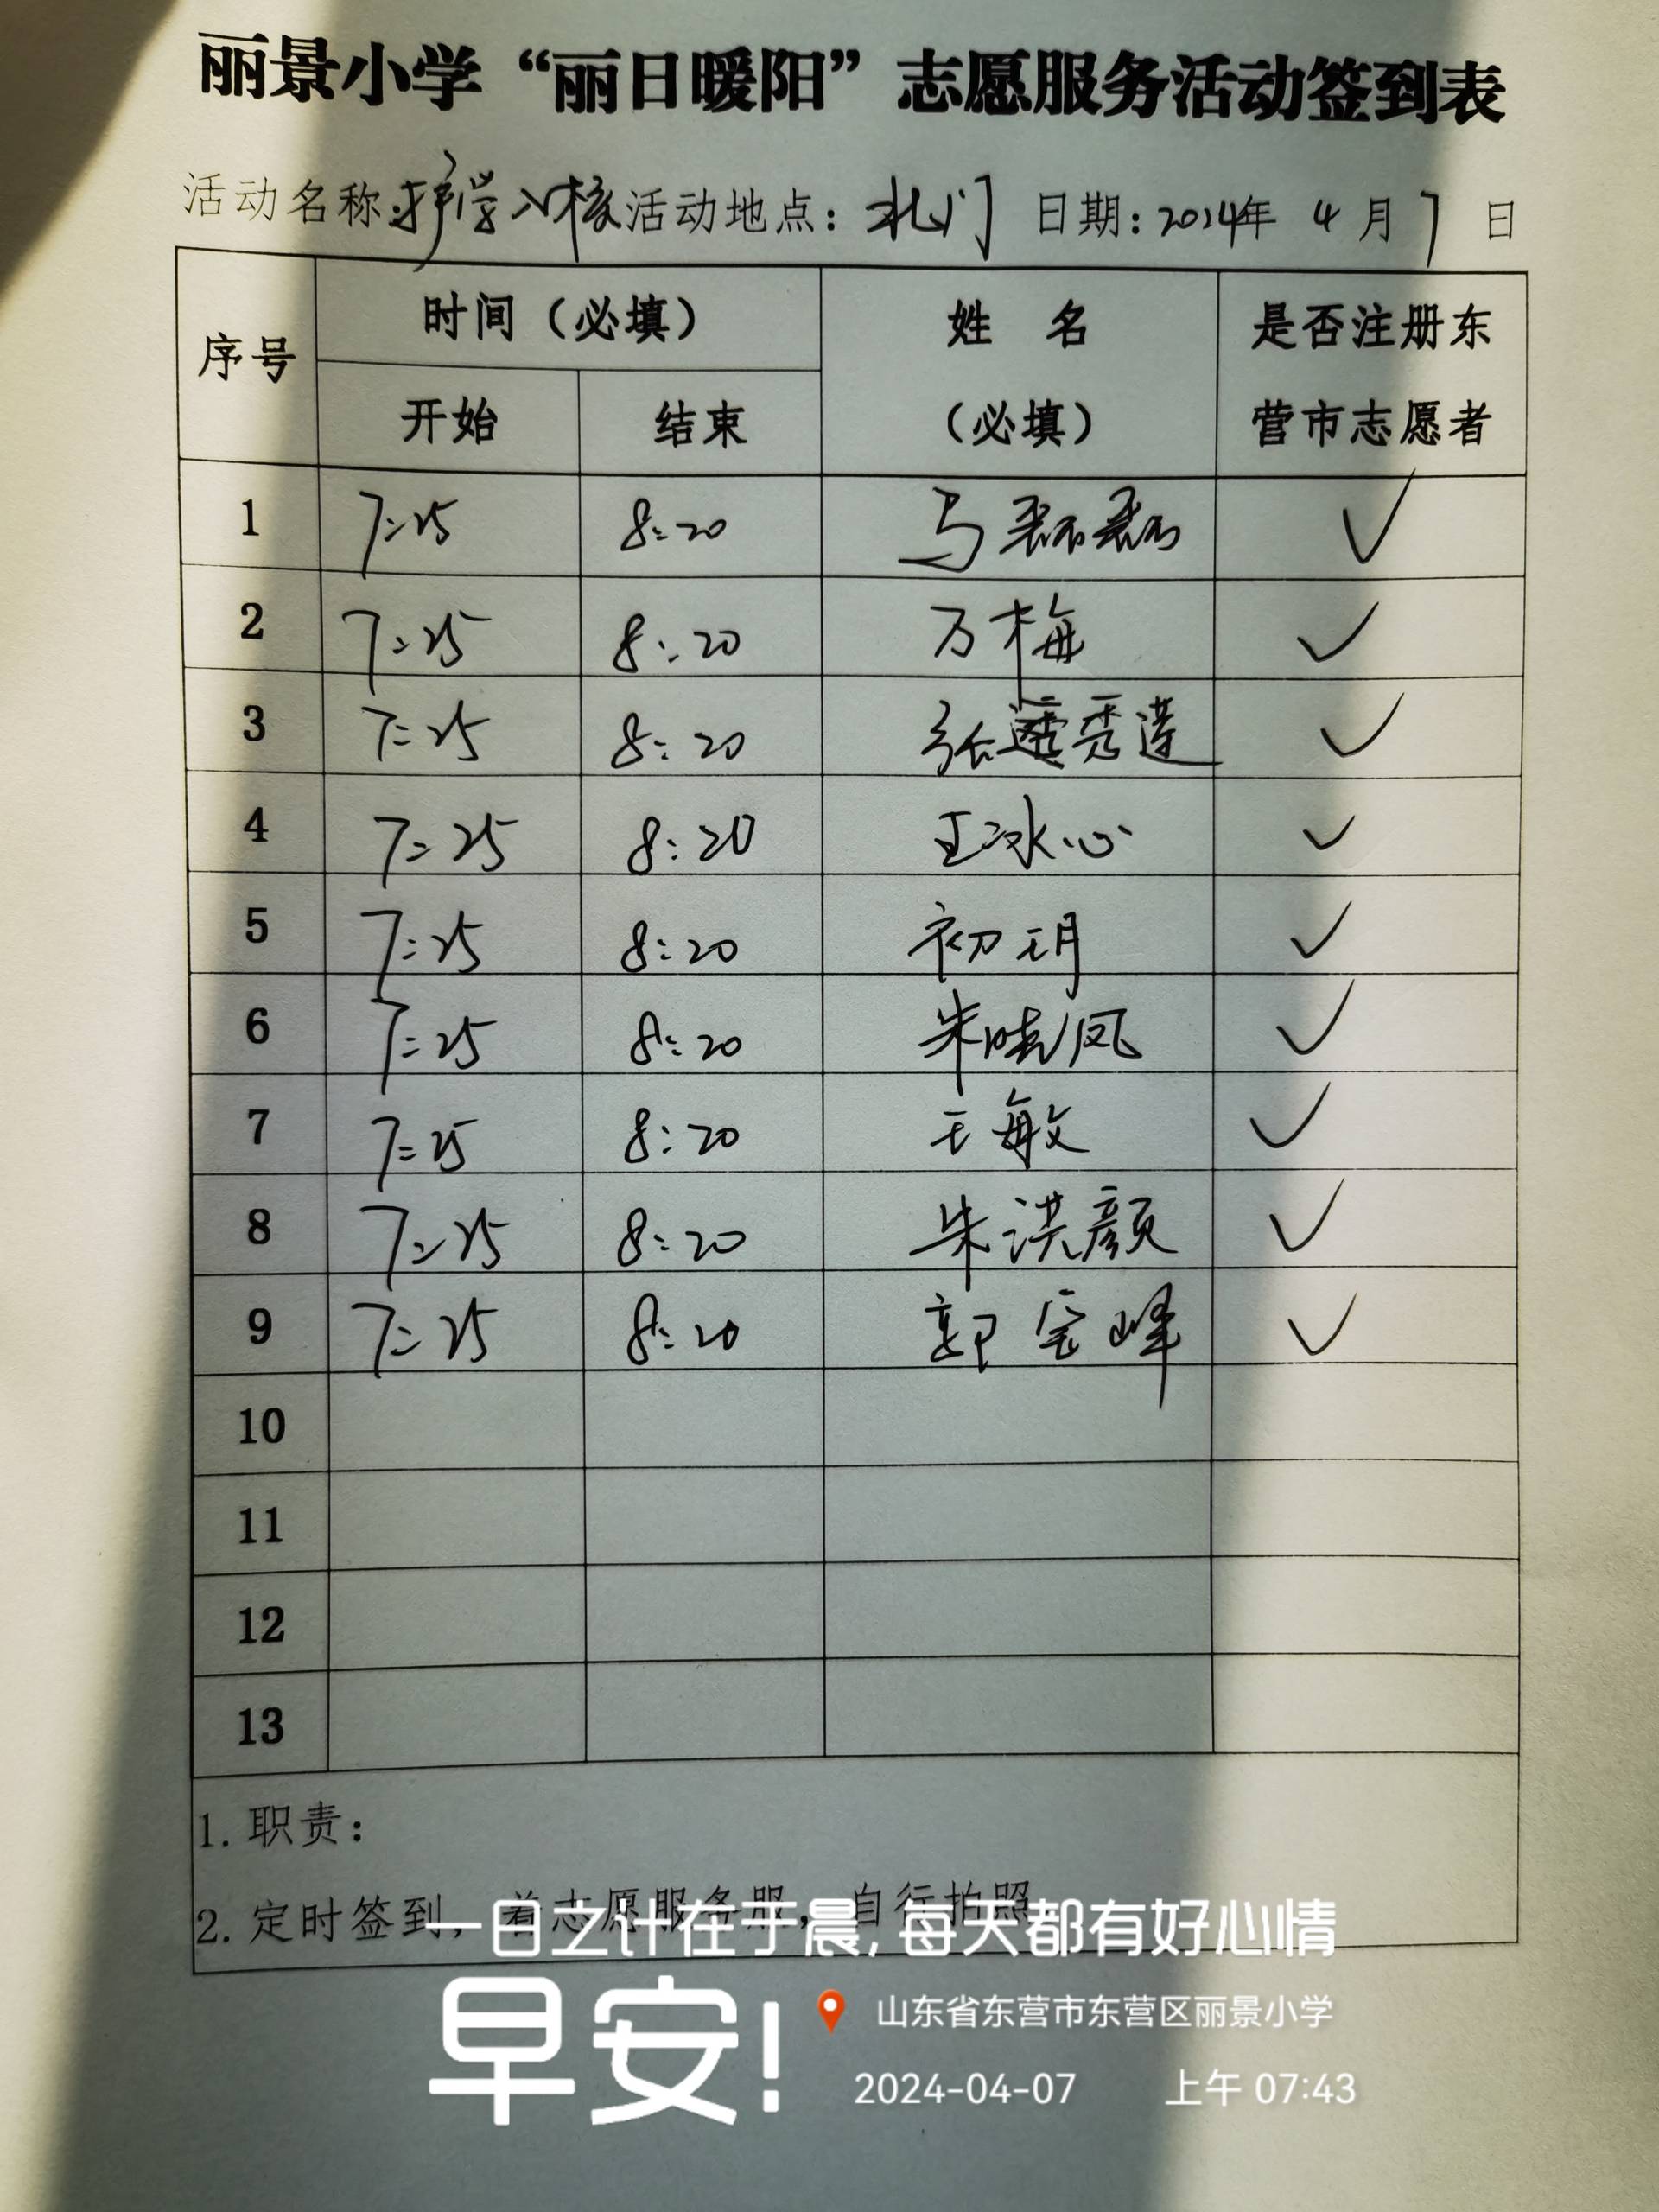 丽景小学“丽日暖阳”志愿服务活动签到表
活动名称:护学入校 活动地点:北门 日期:2024年 4 月 7 日
序号 时间（必填） 姓 名 是否注册东
开始 结束 （必填） 营市志愿者
1 7:25 8:20 马磊磊 ✓
2 7:25 8:20 万梅 ✓
3 7:25 8:20 张秀莲 ✓
4 7:25 8:20 王冰心 ✓
5 7:25 8:20 初玥 ✓
6 7:25 8:20 朱晓凤 ✓
7 7:25 8:20 王敏 ✓
8 7:25 8:20 朱洪颜 ✓
9 7:25 8:20 郭宝峰 ✓
10
11
12
13
1. 职责：
2. 定时签到，着志愿服务服，自行拍照
一日之计在于晨，每天都有好心情
早安！
山东省东营市东营区丽景小学
2024-04-07 上午 07:43